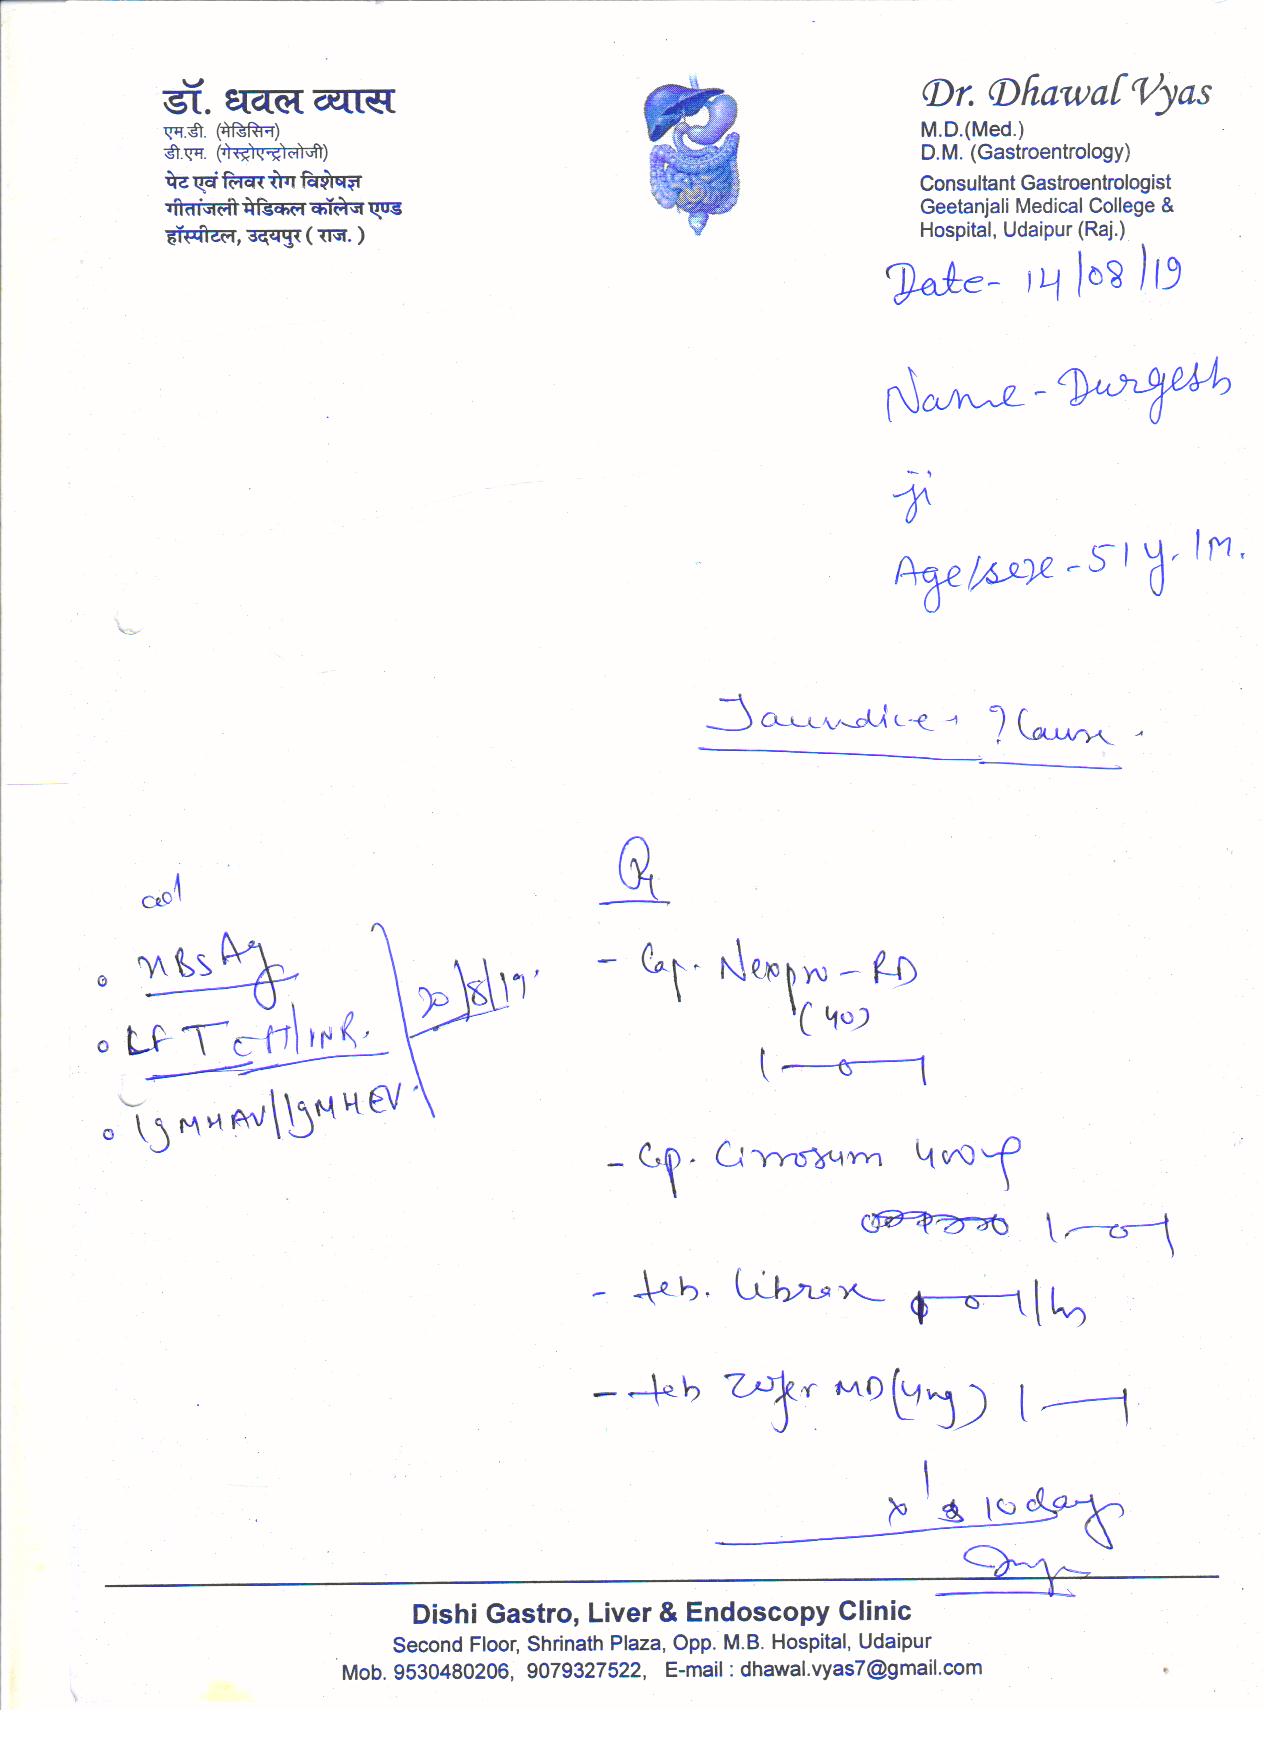 डॉ. धवल व्यास
एम.डी. (मेडिसिन)
डी.एम. (गेस्ट्रोएन्ट्रोलोजी)
पेट एवं लिवर रोग विशेषज्ञ
गीतांजली मेडिकल कॉलेज एण्ड
हॉस्पीटल, उदयपुर ( राज. )
Dr. Dhawal Vyas
M.D.(Med.)
D.M. (Gastroentrology)
Consultant Gastroentrologist
Geetanjali Medical College &
Hospital, Udaipur (Raj.)
Date- 14/08/19
Name - Durgesh
ji
Age/sex - 51 y. / M.
Jaundice. ? Cause.
HBsAg
LFT INR.
20/8/19.
IgM HAV/IgM HEV.
Rx
- Cap. Nexpro-RD
(40)
1-0-1
- Cap. 400
1-0-1
- tab. Librax 0-1
- tab Zofer MD (4mg) 1-1
x 10 days
Dishi Gastro, Liver & Endoscopy Clinic
Second Floor, Shrinath Plaza, Opp. M.B. Hospital, Udaipur
Mob. 9530480206, 9079327522, E-mail : dhawal.vyas7@gmail.com